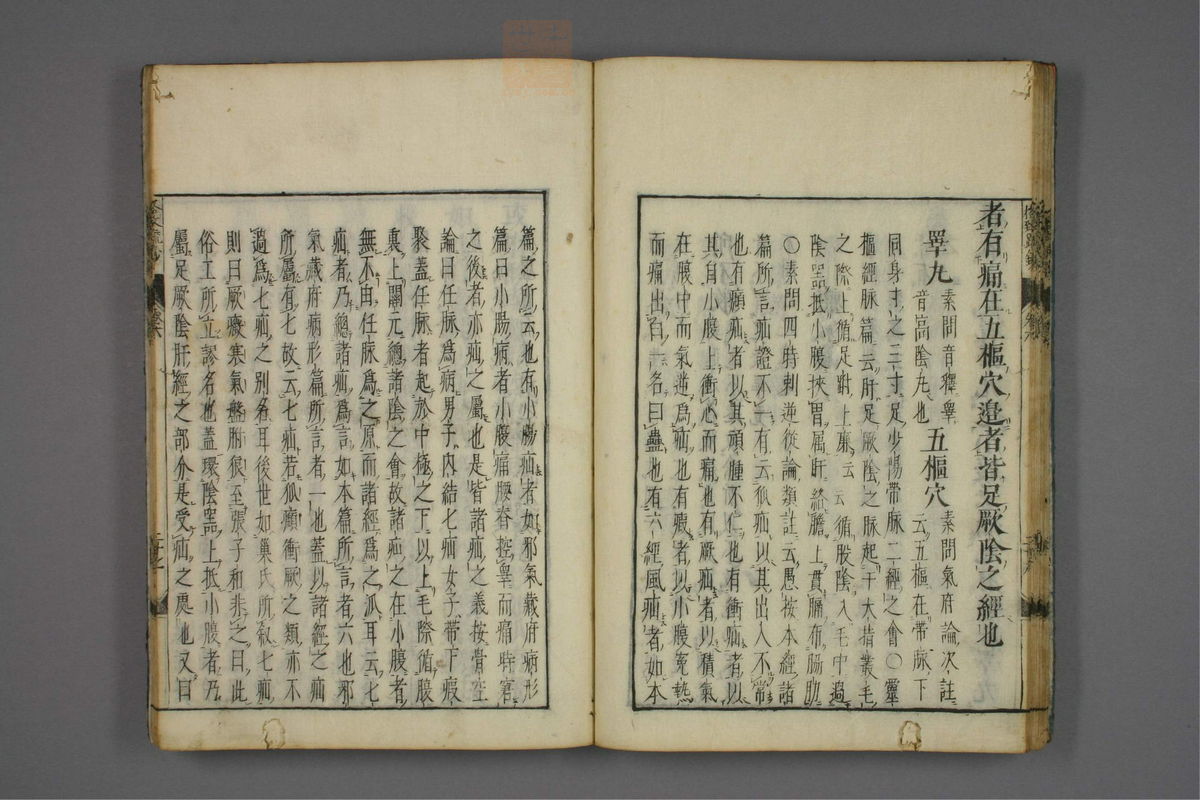 者有痛在五樞穴邉者皆足厥陰之經也
睪丸 素問音釋睪
音高陰丸也
五樞穴 素問氣府論次註
云五樞在帶脉下
同身寸之三寸足少陽帶脉二經之會○靈
樞經脉篇云肝足厥陰之脉起于大指叢毛
之際上循足跗上廉云云循股陰入毛中過
陰器抵小腹挾胃屬肝絡膽上貫膈布脇肋
○素問四時刺逆從論類註云愚按本經諸
篇所言疝證不一有云狐疝以其出入不常
也有㿗疝者以其頑腫不仁也有衝疝者以
其自小腹上衝心而痛也有厥疝者以積氣
在腹中而氣逆爲疝也有瘕者以小腹冤熱
而痛出白一名曰蠱也有六經風疝者如本
篇之所云也有小腸疝者如邪氣藏府病形
篇曰小腸病者小腹痛腰脊控睪而痛時窘
之後者亦疝之屬也是皆諸疝之義按骨空
論曰任脉爲病男子内結七疝女子帶下瘕
聚蓋任脉者起於中極之下以上毛際循腹
裏上關元總諸陰之會故諸疝之在小腹者
無不由任脉爲之原而諸經爲之派耳云七
疝者乃總諸疝爲言如本篇所言者六也邪
氣藏府病形篇所言者一也蓋以諸經之疝
所屬有七故云七疝若狐㿗衝厥之類亦不
過爲七疝之別名耳後世如巢氏所叙七疝
則曰厥癥寒氣盤胕狼至張子和非之曰此
俗工所立謬名也蓋環陰器上抵小腹者乃
屬足厥陰肝經之部分是受疝之處也又曰